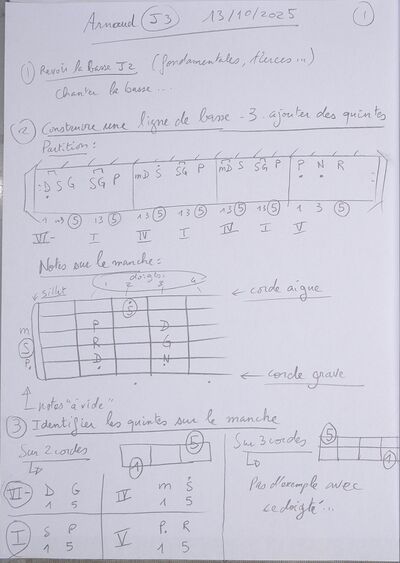 Arnaud J3 13/10/2025 1
1 Revoir la basse J2 (fondamentales, tierces...)
Chanter la basse...
2 Construire une ligne de basse - 3. ajouter des quintes
Partition:
D S G S G P mD S S G P mD S S G P P N R
1 3 5 1 3 5 1 3 5 1 3 5 1 3 5 1 3 5 1 3 5
VI- I IV I IV I V
Notes sur le manche:
doigts:
sillet 1 2 3 4
corde aigue
S
m P D
S R G
P D N
corde grave
notes "à vide"
3 Identifier les quintes sur le manche
Sur 2 cordes 5 Sur 3 cordes 5
1 1
VI- D G IV m S
1 5 1 5
Pas d'exemple avec
ce doigté...
I S P V P R
1 5 1 5